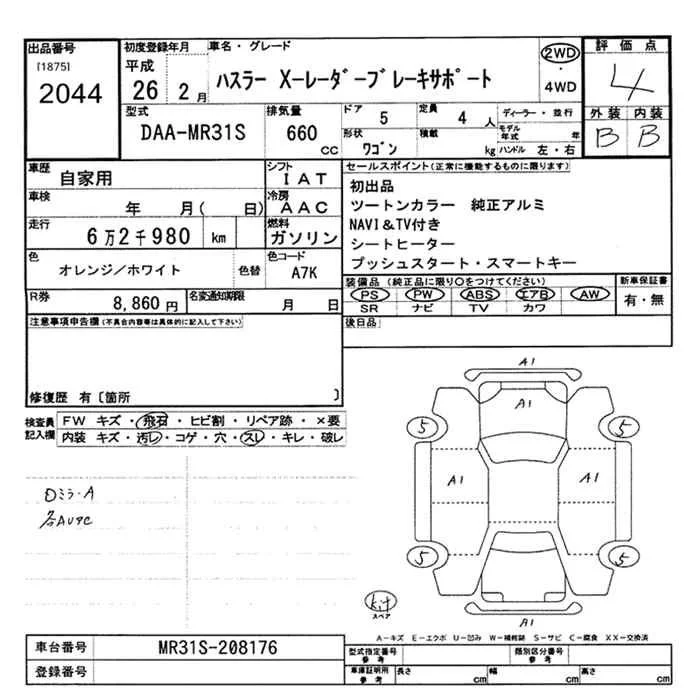 出品番号
[1875]
2044
初度登録年月
平成
26 2月
車名・グレード
ハスラー X-レーダーブレーキサポート
2WD
・
4WD
評価点
4
型式
DAA-MR31S
排気量
660 CC
ドア 5
定員 4人
ディーラー・並行
形状 ワゴン
積載 kg
モデル年式 年
ハンドル 左・右
外装 内装
B B
車歴 自家用
シフト IAT
車検 年 月( 日)
冷房 AAC
走行 6万2千980 km
燃料 ガソリン
色 オレンジ/ホワイト 色替
色コード A7K
R券 8,860円
名変通知期限 月 日
セールスポイント(正常に機能するものに限ります)
初出品
ツートンカラー 純正アルミ
NAVI&TV付き
シートヒーター
プッシュスタート・スマートキー
装備品 (純正品に限り○をつけてください)
PS PW ABS エアB AW
SR ナビ TV カワ
新車保証書
有・無
後日品
注意事項申告欄(不具合内容等は具体的に記入して下さい)
修復歴 有〔箇所 〕
検査員記入欄
FW キズ・飛石・ヒビ割・リペア跡・×要
内装 キズ・汚レ・コゲ・穴・スレ・キレ・破レ
Dミラ・A
各AUPC
A1
A1
5 5
A1 A1
5 5
kit
スペア
A1
A-キズ E-エクボ U-凹み W-補修跡 S-サビ C-腐食 XX-交換済
車台番号 MR31S-208176
登録番号
型式指定番号 参考
類別区分番号 参考
車庫証明用 参考
長さ cm
幅 cm
高さ cm